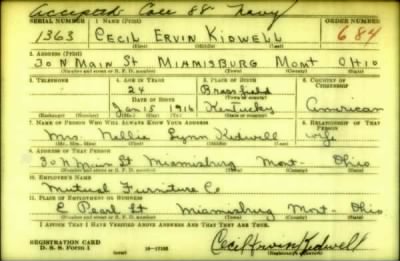 Accepted Call 88 Navy
SERIAL NUMBER 1. NAME (PRINT) ORDER NUMBER
1363 CECIL ERVIN KIDWELL 684
(First) (Middle) (Last)
2. ADDRESS (PRINT)
30 N MAIN St MIAMISBURG MONT OHIO
(Number and street or R. F. D. number) (Town) (County) (State)
3. TELEPHONE 4. AGE IN YEARS 5. PLACE OF BIRTH 6. COUNTRY OF CITIZENSHIP
24 Brassfield
(Town or county)
DATE OF BIRTH
Jan 15 1916 Kentucky American
(Exchange) (Number) (Mo.) (Day) (Yr.) (State or country)
7. NAME OF PERSON WHO WILL ALWAYS KNOW YOUR ADDRESS 8. RELATIONSHIP OF THAT PERSON
Mrs. Nellie Lynn Kidwell wife
(Mr., Mrs., Miss) (First) (Middle) (Last)
9. ADDRESS OF THAT PERSON
30 N Main St Miamisburg Mont- Ohio
(Number and street or R. F. D. number) (Town) (County) (State)
10. EMPLOYER'S NAME
Mutual Furniture Co
11. PLACE OF EMPLOYMENT OR BUSINESS
E Pearl St Miamisburg Mont- Ohio
(Number and street or R. F. D. number) (Town) (County) (State)
I AFFIRM THAT I HAVE VERIFIED ABOVE ANSWERS AND THAT THEY ARE TRUE.
REGISTRATION CARD
D. S. S. Form 1 (over) Cecil Ervin Kidwell